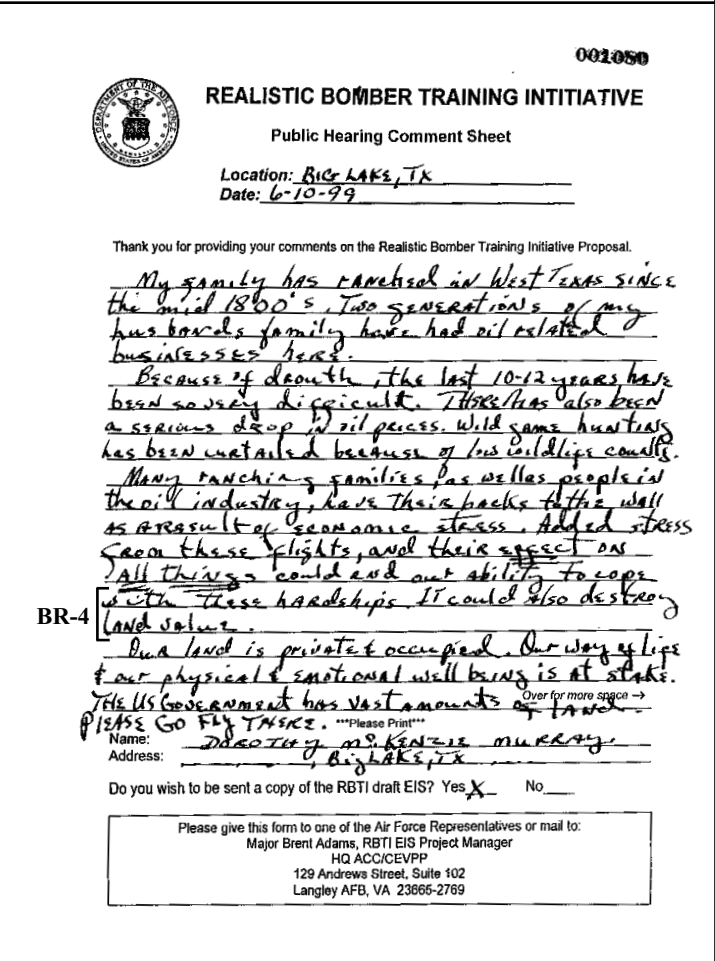 001080
DEPARTMENT OF THE AIR FORCE
UNITED STATES OF AMERICA
REALISTIC BOMBER TRAINING INTITIATIVE
Public Hearing Comment Sheet
Location: BIG LAKE, TX
Date: 6-10-99
Thank you for providing your comments on the Realistic Bomber Training Initiative Proposal.
My family has ranched in West Texas since
the mid 1800's. Two generations of my
husbands family have had oil related
businesses here.
Because of drouth, the last 10-12 years have
been so very difficult. There has also been
a serious drop in oil prices. Wild game hunting
has been curtailed because of low wildlife counts.
Many ranching families, as well as people in
the oil industry, have their backs to the wall
as a result of economic stress. Added stress
from these flights, and their effect on
All things could end our ability to cope
with these hardships. It could also destroy
BR-4
land value.
Our land is private & occupied. Our way of life
& our physical & emotional well being is at stake.
THE US Government has vast amounts of land.
Over for more space →
Please Go Fly There.
***Please Print***
Name: Dorothy McKenzie Murray
Address: , Big Lake, TX
Do you wish to be sent a copy of the RBTI draft EIS? Yes X No
Please give this form to one of the Air Force Representatives or mail to:
Major Brent Adams, RBTI EIS Project Manager
HQ ACC/CEVPP
129 Andrews Street, Suite 102
Langley AFB, VA 23665-2769